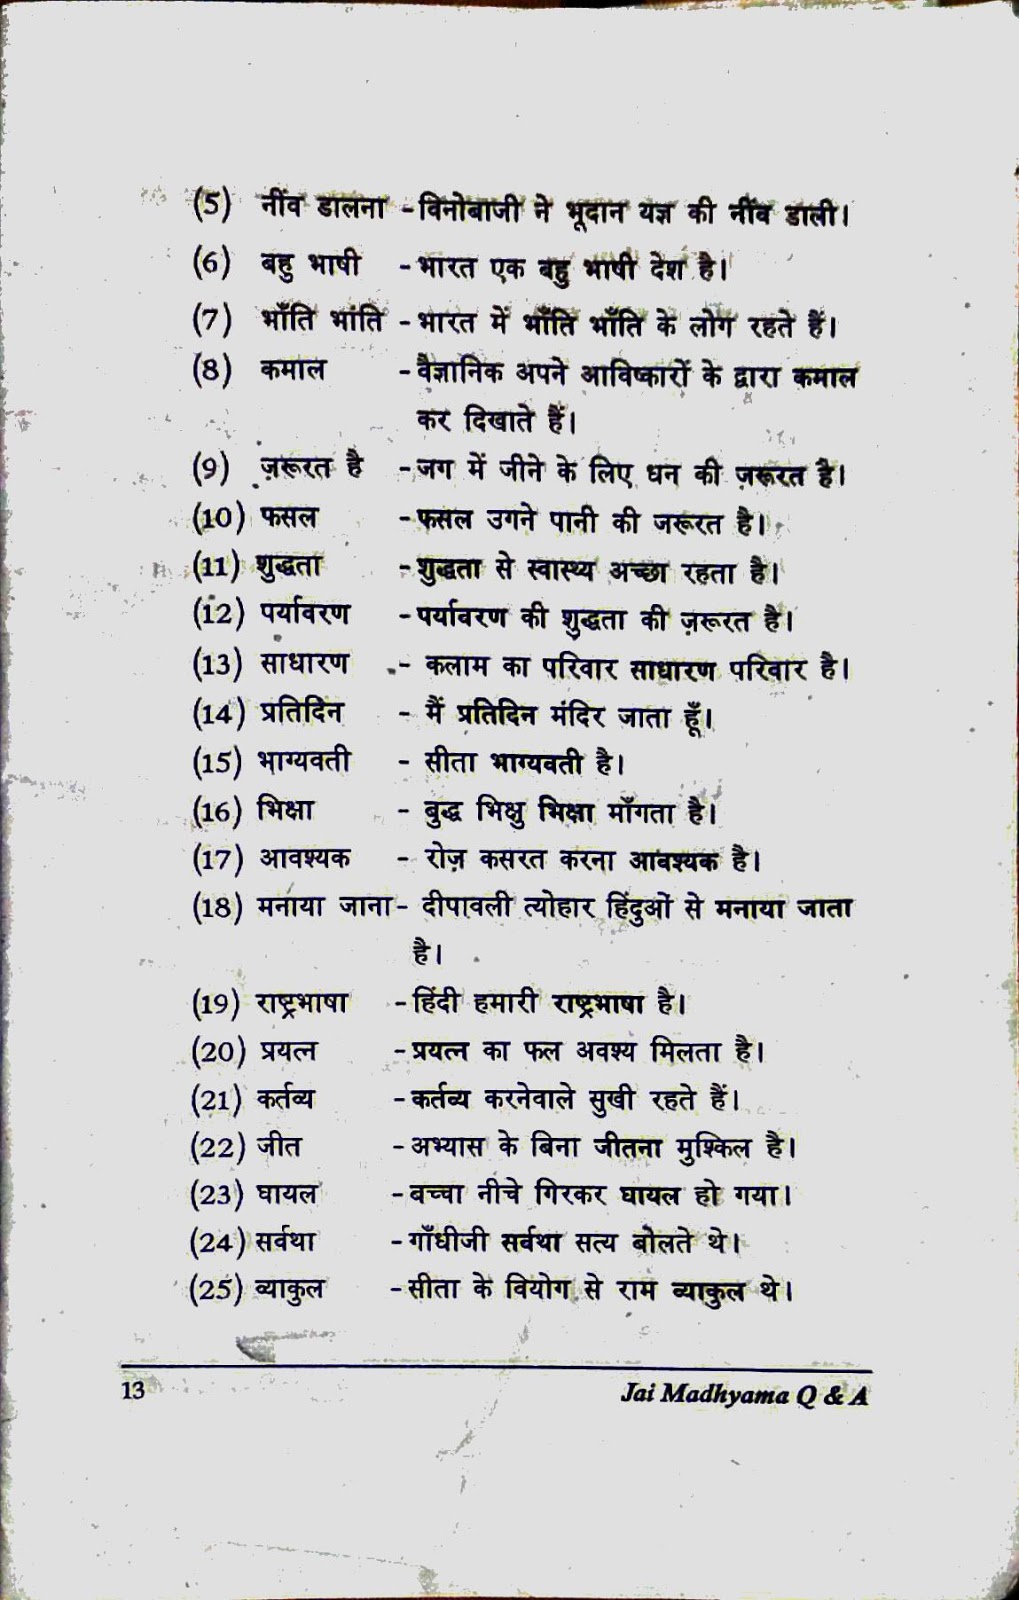 (5) नींव डालना - विनोबाजी ने भूदान यज्ञ की नींव डाली।
(6) बहु भाषी - भारत एक बहु भाषी देश है।
(7) भाँति भांति - भारत में भाँति भाँति के लोग रहते हैं।
(8) कमाल - वैज्ञानिक अपने आविष्कारों के द्वारा कमाल
कर दिखाते हैं।
(9) ज़रूरत है - जग में जीने के लिए धन की ज़रूरत है।
(10) फसल - फसल उगने पानी की जरूरत है।
(11) शुद्धता - शुद्धता से स्वास्थ्य अच्छा रहता है।
(12) पर्यावरण - पर्यावरण की शुद्धता की ज़रूरत है।
(13) साधारण - कलाम का परिवार साधारण परिवार है।
(14) प्रतिदिन - मैं प्रतिदिन मंदिर जाता हूँ।
(15) भाग्यवती - सीता भाग्यवती है।
(16) भिक्षा - बुद्ध भिक्षु भिक्षा माँगता है।
(17) आवश्यक - रोज़ कसरत करना आवश्यक है।
(18) मनाया जाना - दीपावली त्योहार हिंदुओं से मनाया जाता
है।
(19) राष्ट्रभाषा - हिंदी हमारी राष्ट्रभाषा है।
(20) प्रयत्न - प्रयत्न का फल अवश्य मिलता है।
(21) कर्तव्य - कर्तव्य करनेवाले सुखी रहते हैं।
(22) जीत - अभ्यास के बिना जीतना मुश्किल है।
(23) घायल - बच्चा नीचे गिरकर घायल हो गया।
(24) सर्वथा - गाँधीजी सर्वथा सत्य बोलते थे।
(25) व्याकुल - सीता के वियोग से राम व्याकुल थे।
13 Jai Madhyama Q & A